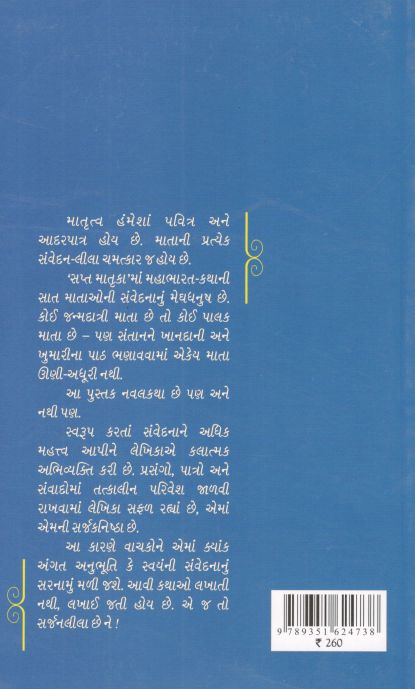 માતૃત્વ હંમેશાં પવિત્ર અને
આદરપાત્ર હોય છે. માતાની પ્રત્યેક
સંવેદન-લીલા ચમત્કાર જ હોય છે.
‘સપ્ત માતૃકા’માં મહાભારત-કથાની
સાત માતાઓની સંવેદનાનું મેઘધનુષ છે.
કોઈ જન્મદાત્રી માતા છે તો કોઈ પાલક
માતા છે – પણ સંતાનને ખાનદાની અને
ખુમારીના પાઠ ભણાવવામાં એકેય માતા
ઊણી-અધૂરી નથી.
આ પુસ્તક નવલકથા છે પણ અને
નથી પણ.
સ્વરૂપ કરતાં સંવેદનાને અધિક
મહત્ત્વ આપીને લેખિકાએ કલાત્મક
અભિવ્યક્તિ કરી છે. પ્રસંગો, પાત્રો અને
સંવાદોમાં તત્કાલીન પરિવેશ જાળવી
રાખવામાં લેખિકા સફળ રહ્યાં છે, એમાં
એમની સર્જકનિષ્ઠા છે.
આ કારણે વાચકોને એમાં ક્યાંક
અંગત અનુભૂતિ કે સ્વયંની સંવેદનાનું
સરનામું મળી જશે. આવી કથાઓ લખાતી
નથી, લખાઈ જતી હોય છે. એ જ તો
સર્જનલીલા છે ને !
9 789351 624738
₹ 260